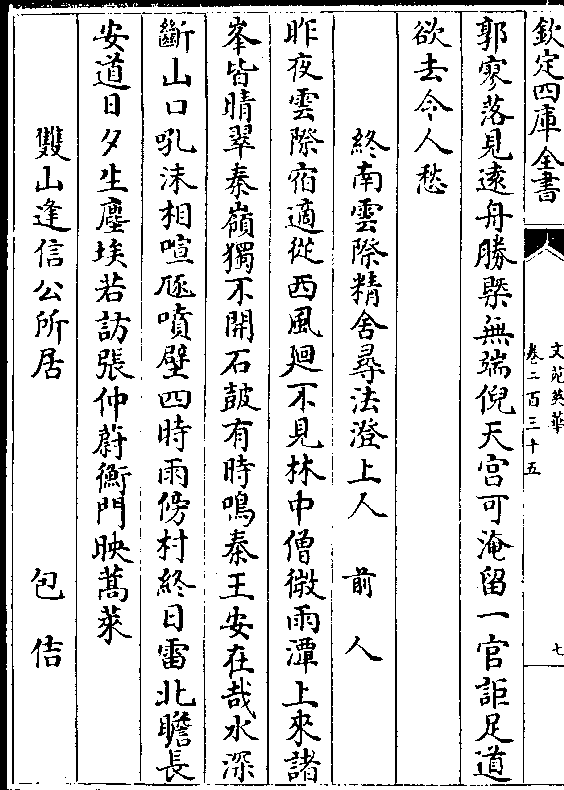 欽定四庫全書
文苑英華
卷二百三十五
七
郭寥落見遠舟勝槩無端倪天宮可淹留一官詎足道
欲去令人愁
終南雲際精舍尋法澄上人　前人
昨夜雲際宿適從西風廻不見林中僧微雨潭上來諸
峯皆晴翠秦嶺獨不開石鼓有時鳴秦王安在哉水深
斷山口吼沫相喧豗噴壁四時雨傍村終日雷北瞻長
安道日夕生塵埃若訪張仲蔚衡門映蒿萊
雙山逢信公所居　包佶